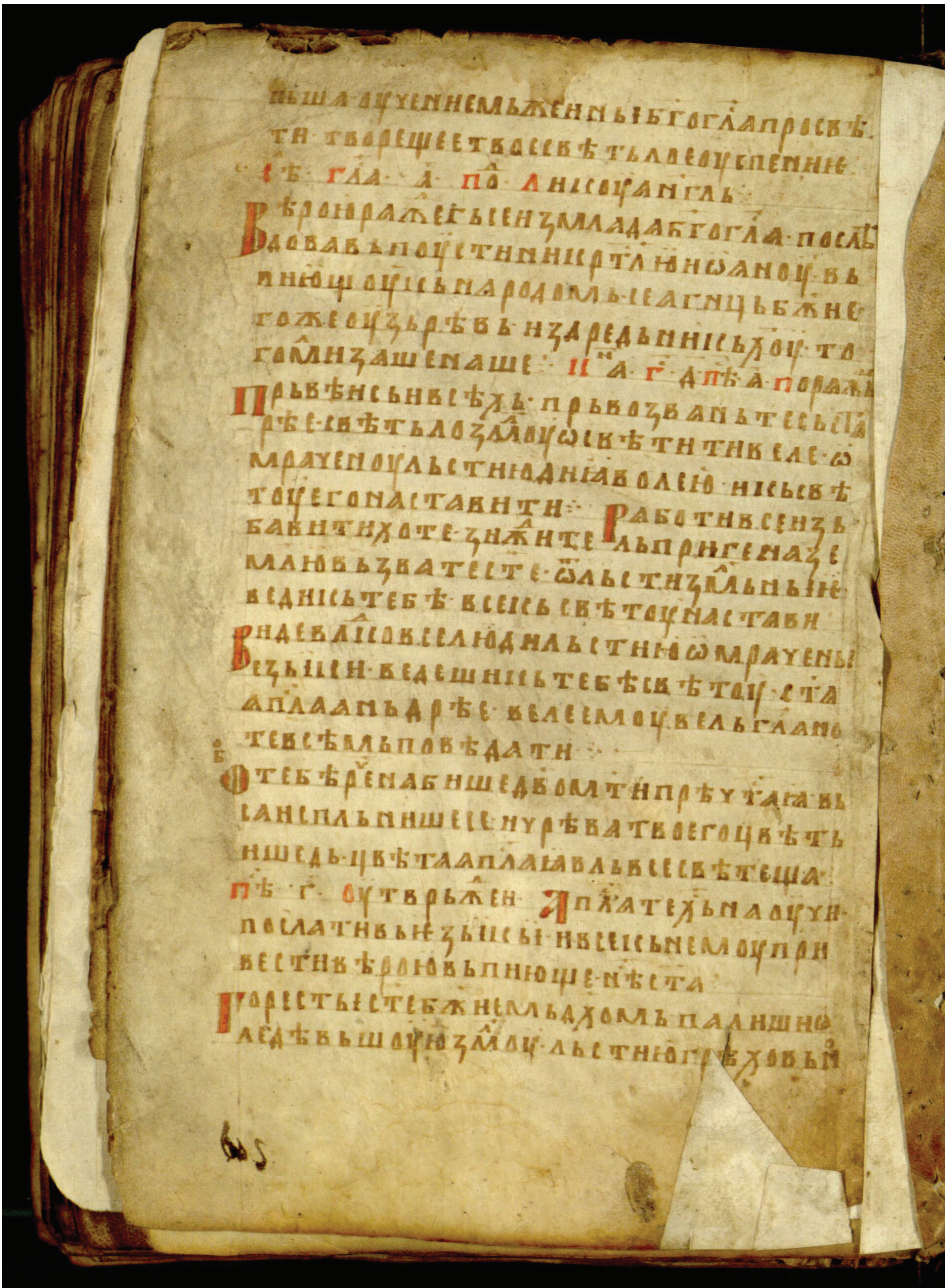 пьша оучениемь женины б҃гогл҃а просвѣ
ти творещее твосе свѣтьлое оуспение
с҃ѣ гл҃а а҃ по ликоу анг҃ль
Вѣрою раж҃егьсе измлада б҃гогл҃а послѣ
довавь поустинни крт҃лю иѡаноу вь
пию҃щоу кь народомь се агнць б҃жи не
гоже оузьрѣвь издредьни кь хо҃у то
гом҃лиза ше наше к҃а г҃ д пѣ а҃ по раж҃ь
Прьвѣнсьи всѣхь прьвозвань тесь па
рѣе свѣтьло зм҃лоу ѡсвѣтити веле ѡ
мраченоу льстию диꙗволею и кь свѣ
тоу его наставити Работи все изь
бавити хоте зиж҃итсе ль при г҃е на зе
млю вьзвать есте ѿ льсти зм҃льные
ведни кь тебѣ все кь свѣтоу настави
Видев лк҃ов се люди льстию ѡмрачены
езыки ведеши кь тебѣ свѣтоу ст҃а
ап҃ла аньдрѣе велее моу вельгл҃ано
те всѣмь поведати
об
О тебѣ рч҃ена бише двом ти прѣчтаꙗ вь
са испльнише се и чрѣва твоего цвѣть
ишедь цвѣта ап҃ла ꙗвль все свѣте ша
пѣ г҃ оутврьж҃ен Ап҃ла те х҃ь на оучи
послати вь езыкы и все кь немоу при
вести вѣрою вьпиюще нѣ ста
Горесть е сте бж҃иемь дх҃омь пали ши ѡ
ледѣвьшоую зм҃оу льстию грѣховьн